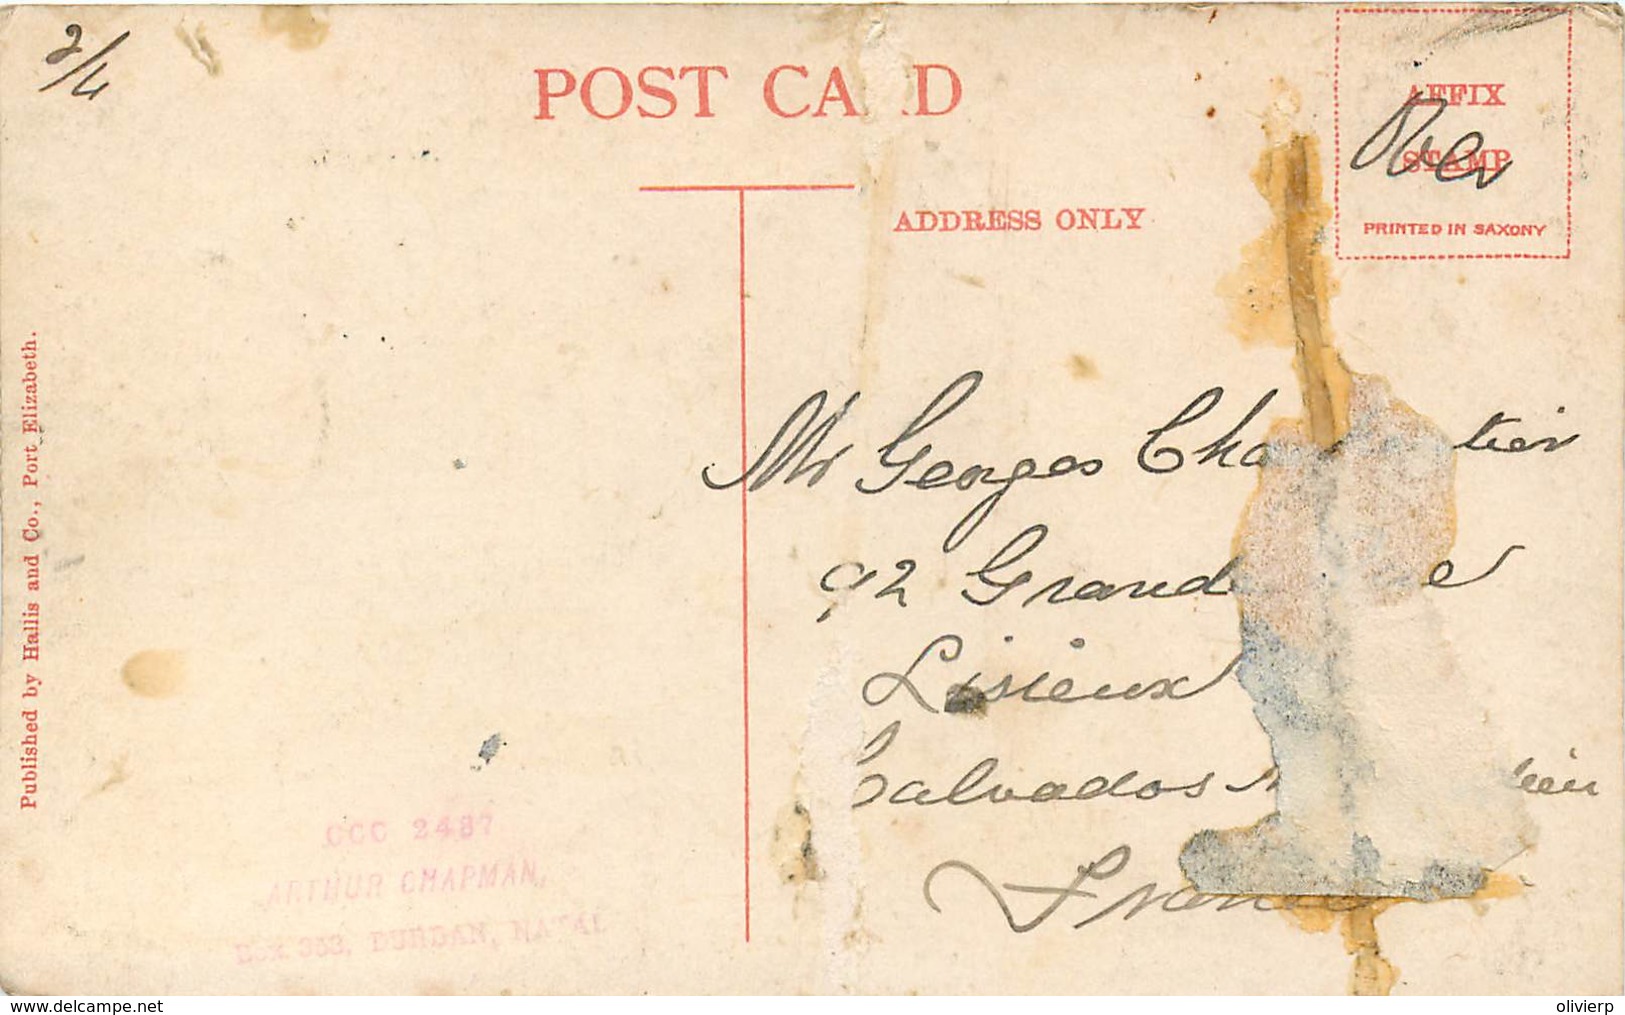 2/4
POST CARD
AFFIX
STAMP
Over
PRINTED IN SAXONY
ADDRESS ONLY
Published by Hallis and Co., Port Elizabeth.
Mr Georges Cha tier
92 Grande e
Lisieux
Calvados
France
CCC 2487
ARTHUR CHAPMAN,
BOX 353, DURBAN, NATAL
https://www.delcampe.net
olivierp